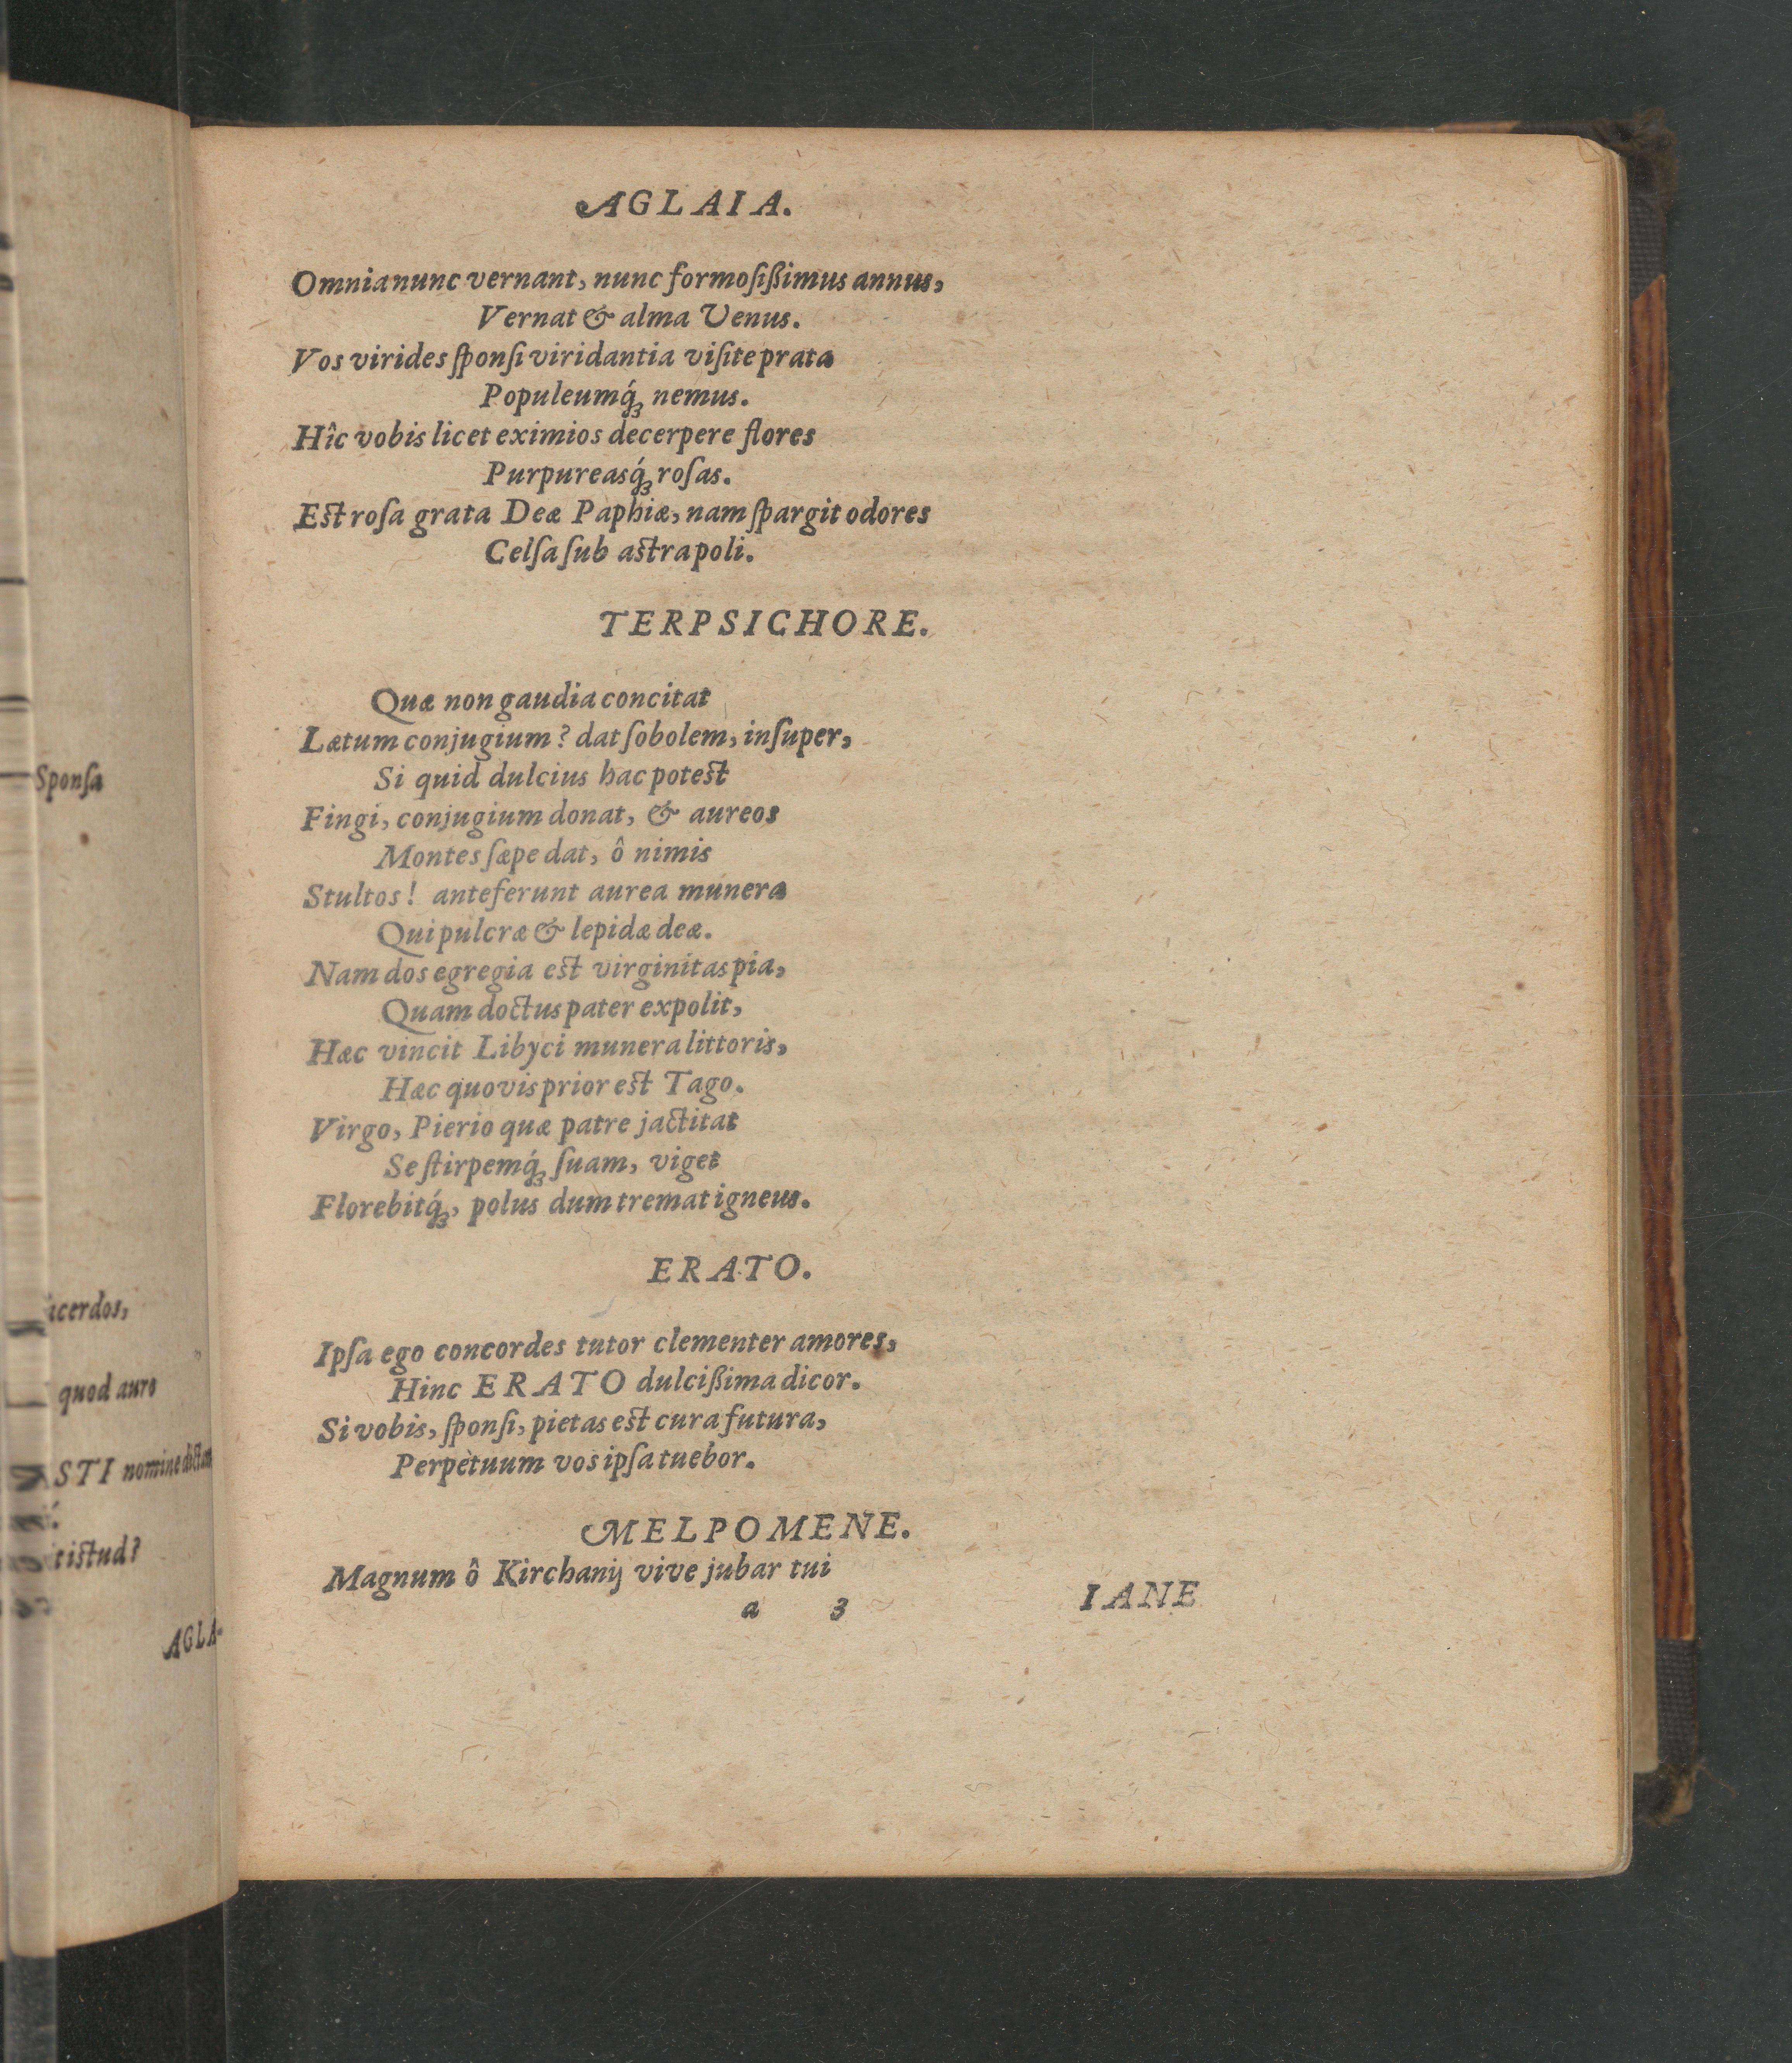 Sponſa
quod auro
STI nomine dictam
AGLA-
AGLAIA.
Omnia nunc vernant, nunc formoſißimus annus,
Vernat & alma Venus.
Vos virides ſponſi viridantia viſite prata
Populeumq́ꝫ nemus.
Hîc vobis licet eximios decerpere flores
Purpureasq́ꝫ roſas.
Est roſa grata Deæ Paphiæ, nam ſpargit odores
Celſa ſub astra poli.
TERPSICHORE.
Quæ non gaudia concitat
Lætum conjugium? dat ſobolem, inſuper,
Si quid dulcius hac potest
Fingi, conjugium donat, & aureos
Montes ſæpe dat, ô nimis
Stultos! anteferunt aurea munera
Qui pulcræ & lepidæ deæ.
Nam dos egregia est virginitas pia,
Quam doctus pater expolit,
Hæc vincit Libyci munera littoris,
Hæc quovis prior est Tago.
Virgo, Pierio quæ patre jactitat
Se ſtirpemq́ꝫ ſuam, viget
Florebitq́ꝫ, polus dum tremat igneus.
ERATO.
Ipſa ego concordes tutor clementer amores,
Hinc ERATO dulcißima dicor.
Si vobis, ſponſi, pietas est cura futura,
Perpetuum vos ipſa tuebor.
MELPOMENE.
Magnum ô Kirchanij vive jubar tui
a 3 IANE